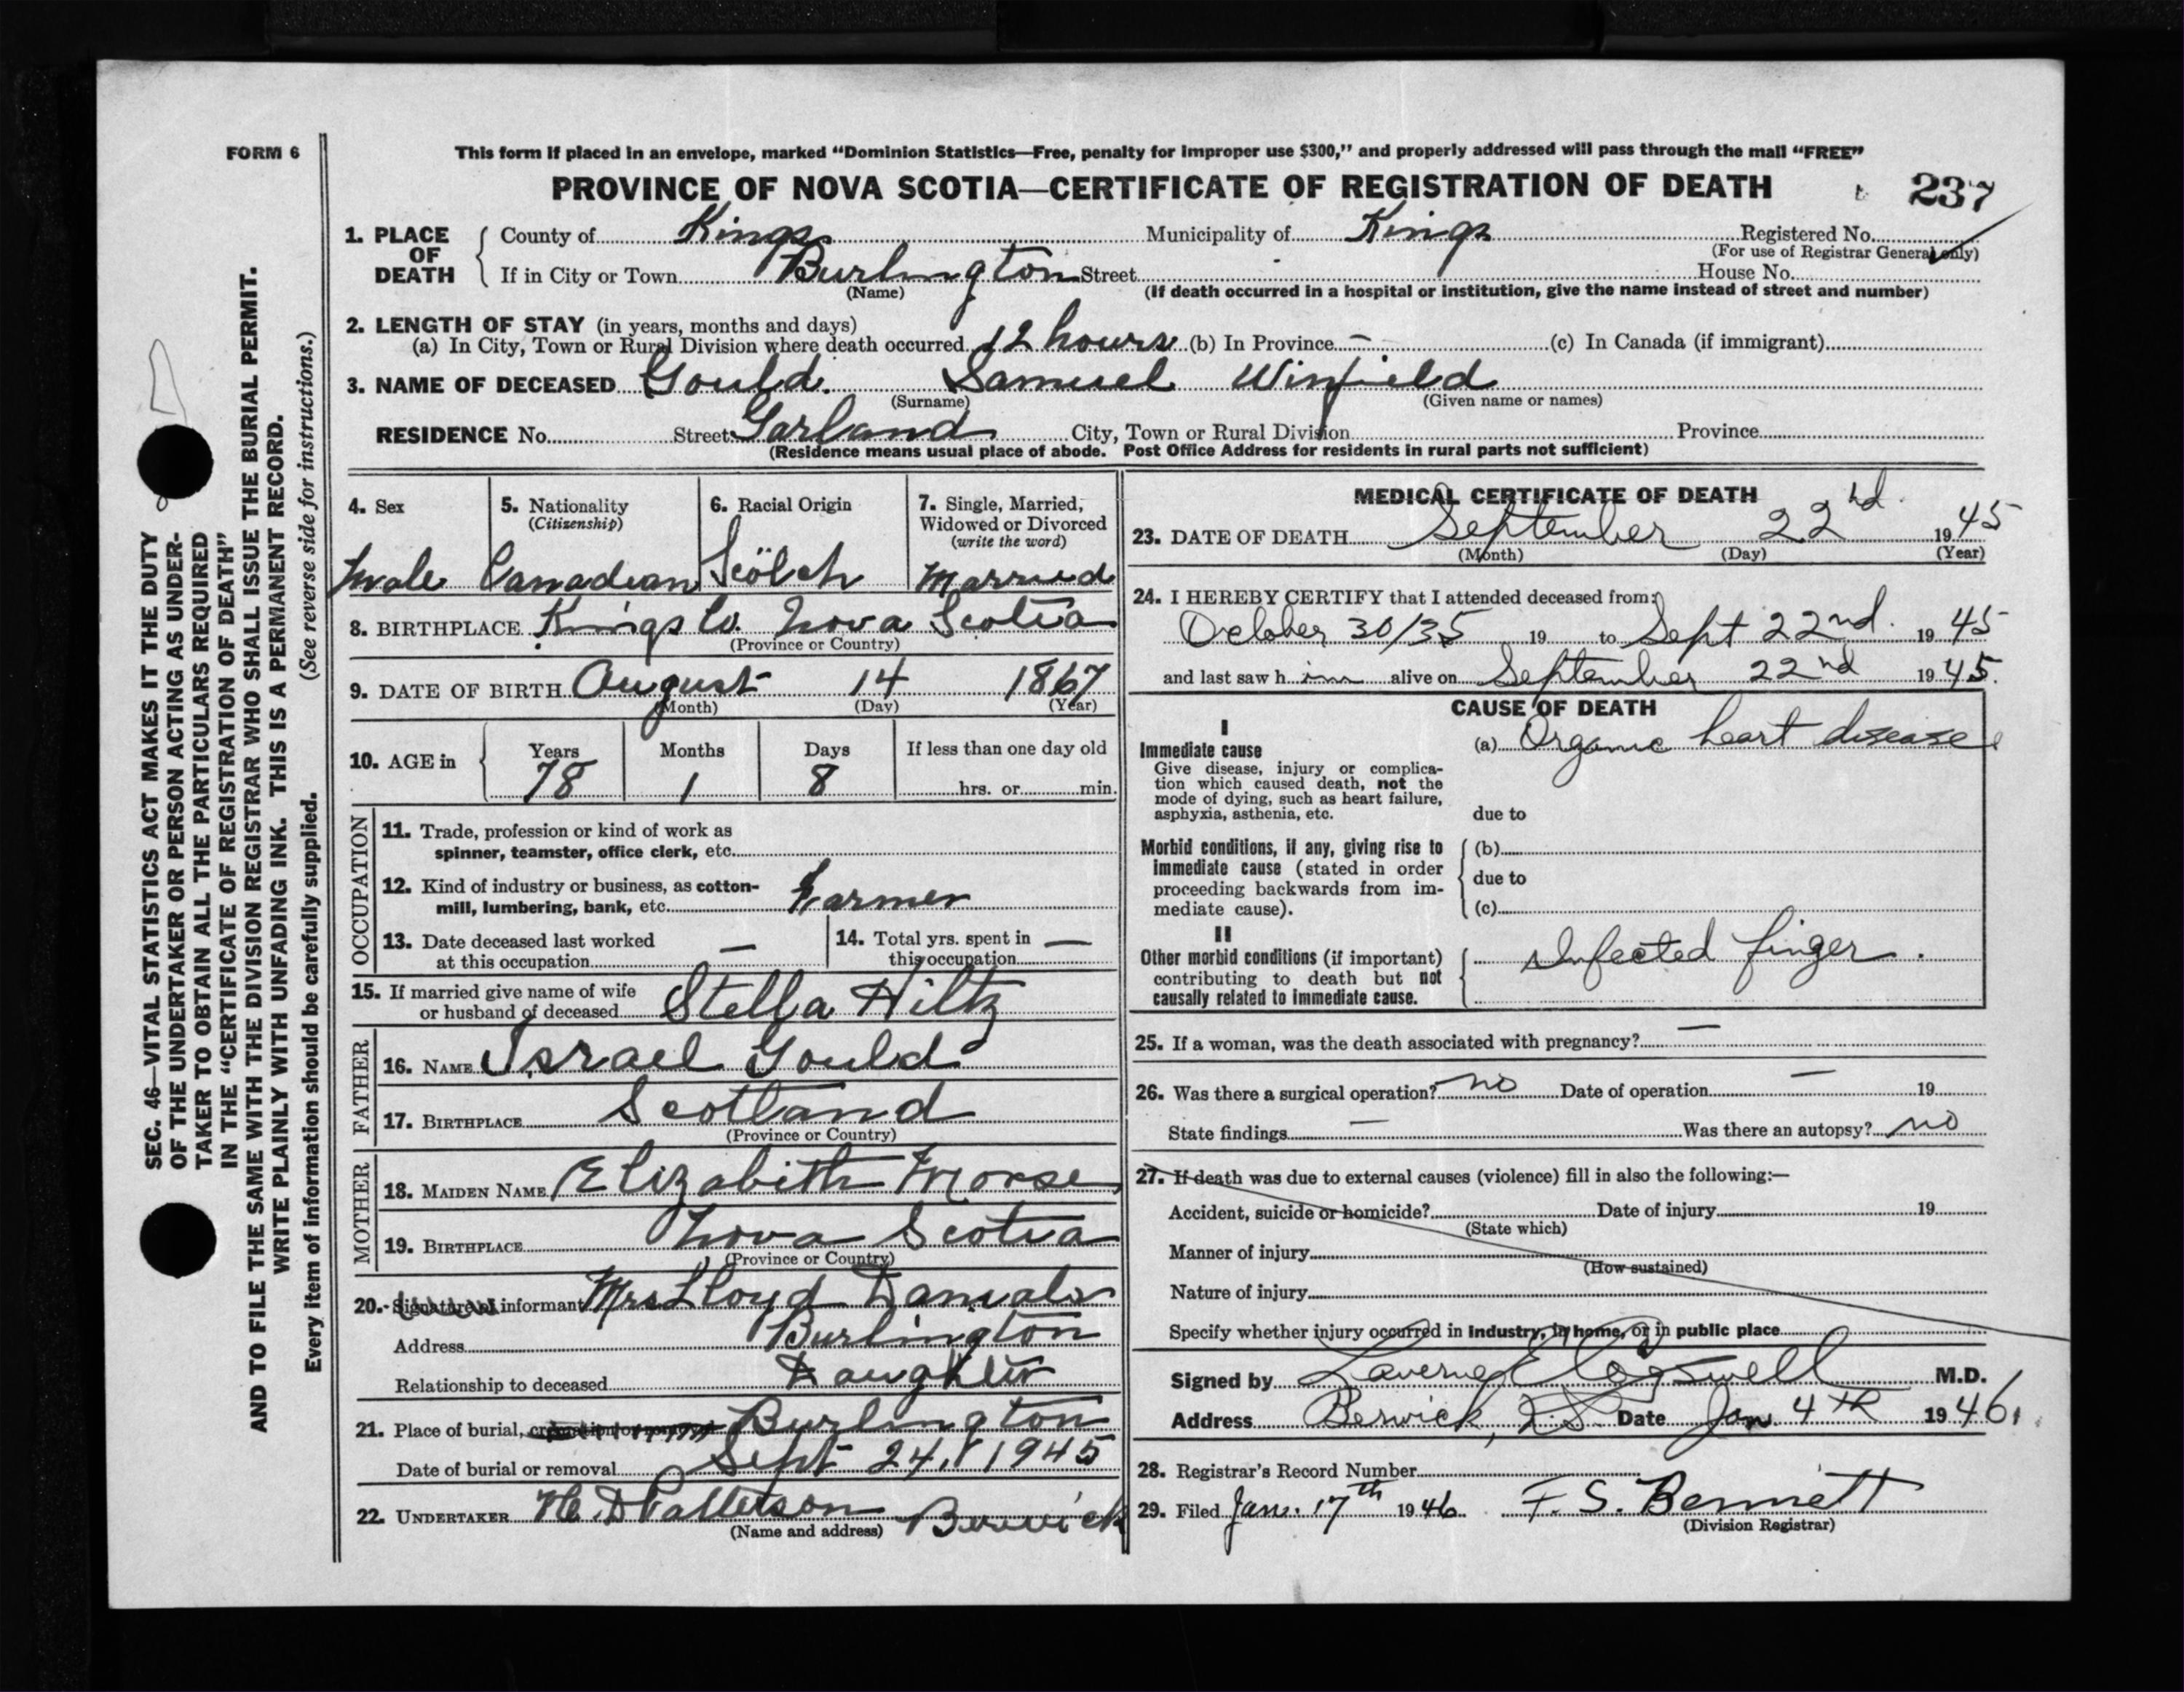 FORM 6
This form if placed in an envelope, marked “Dominion Statistics—Free, penalty for improper use $300,” and properly addressed will pass through the mail “FREE”
PROVINCE OF NOVA SCOTIA—CERTIFICATE OF REGISTRATION OF DEATH 237
1. PLACE OF DEATH County of Kings Municipality of Kings Registered No.
(For use of Registrar General only)
If in City or Town Burlington Street House No.
(Name) (If death occurred in a hospital or institution, give the name instead of street and number)
2. LENGTH OF STAY (in years, months and days)
(a) In City, Town or Rural Division where death occurred 12 hours (b) In Province — (c) In Canada (if immigrant)
3. NAME OF DECEASED Gould. Samuel Winfield
(Surname) (Given name or names)
RESIDENCE No. Street Garland City, Town or Rural Division Province
(Residence means usual place of abode. Post Office Address for residents in rural parts not sufficient)
4. Sex
male
5. Nationality
(Citizenship)
Canadian
6. Racial Origin
Scotch
7. Single, Married,
Widowed or Divorced
(write the word)
Married
8. BIRTHPLACE Kings Co. Nova Scotia
(Province or Country)
9. DATE OF BIRTH August 14 1867
(Month) (Day) (Year)
10. AGE in Years Months Days If less than one day old
78 1 8 hrs. or min.
OCCUPATION
11. Trade, profession or kind of work as
spinner, teamster, office clerk, etc.
12. Kind of industry or business, as cotton-
mill, lumbering, bank, etc. Farmer
13. Date deceased last worked
at this occupation —
14. Total yrs. spent in
this occupation —
15. If married give name of wife
or husband of deceased Stella Hiltz
FATHER
16. NAME Israel Gould
17. BIRTHPLACE Scotland
(Province or Country)
MOTHER
18. MAIDEN NAME Elizabith Morse
19. BIRTHPLACE Nova Scotia
(Province or Country)
20. Signature of informant Mrs Lloyd Danials
Address Burlington
Relationship to deceased Daughter
21. Place of burial, cremation or removal Burlington
Date of burial or removal Sept 24, 1945
22. UNDERTAKER H. D Patterson Berwick
(Name and address)
MEDICAL CERTIFICATE OF DEATH
23. DATE OF DEATH September 22nd. 1945
(Month) (Day) (Year)
24. I HEREBY CERTIFY that I attended deceased from:
October 30/35 19 to Sept 22nd. 1945
and last saw h im alive on September 22nd 1945.
CAUSE OF DEATH
I
Immediate cause (a) Organic heart disease
Give disease, injury or complica-
tion which caused death, not the
mode of dying, such as heart failure,
asphyxia, asthenia, etc. due to
Morbid conditions, if any, giving rise to (b)
immediate cause (stated in order
proceeding backwards from im- due to
mediate cause). (c)
II
Other morbid conditions (if important) Infected finger.
contributing to death but not
causally related to immediate cause.
25. If a woman, was the death associated with pregnancy? —
26. Was there a surgical operation? no Date of operation — 19
State findings — Was there an autopsy? no
27. If death was due to external causes (violence) fill in also the following:—
Accident, suicide or homicide? Date of injury 19
(State which)
Manner of injury
(How sustained)
Nature of injury
Specify whether injury occurred in industry, in home, or in public place
Signed by Laverne E Cogswell M.D.
Address Berwick, N.S. Date Jan. 4th 1946.
28. Registrar's Record Number
29. Filed Jan. 17th 1946 F. S. Bennett
(Division Registrar)
SEC. 46—VITAL STATISTICS ACT MAKES IT THE DUTY
OF THE UNDERTAKER OR PERSON ACTING AS UNDER-
TAKER TO OBTAIN ALL THE PARTICULARS REQUIRED
IN THE “CERTIFICATE OF REGISTRATION OF DEATH”
AND TO FILE THE SAME WITH THE DIVISION REGISTRAR WHO SHALL ISSUE THE BURIAL PERMIT.
WRITE PLAINLY WITH UNFADING INK. THIS IS A PERMANENT RECORD.
Every item of information should be carefully supplied. (See reverse side for instructions.)